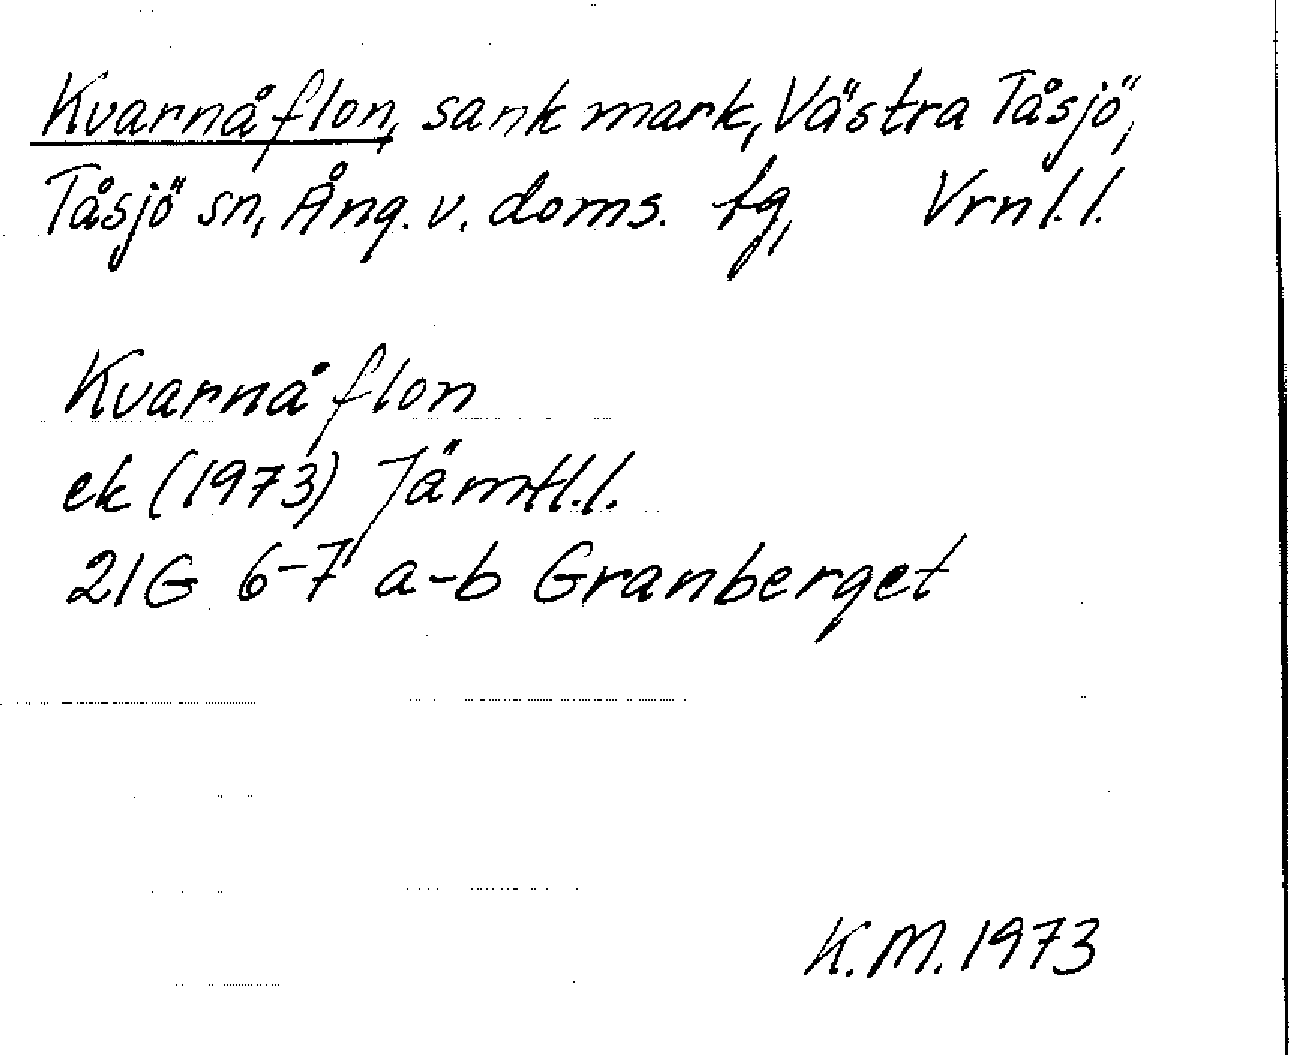 Kvarnåflon, sank mark, Västra Tåsjö,
Tåsjö sn, Ång. v. doms. tg, Vrnl.l.
Kvarnåflon
ek (1973) Jämtl.l.
21G 6-7 a-b Granberget
K.M. 1973